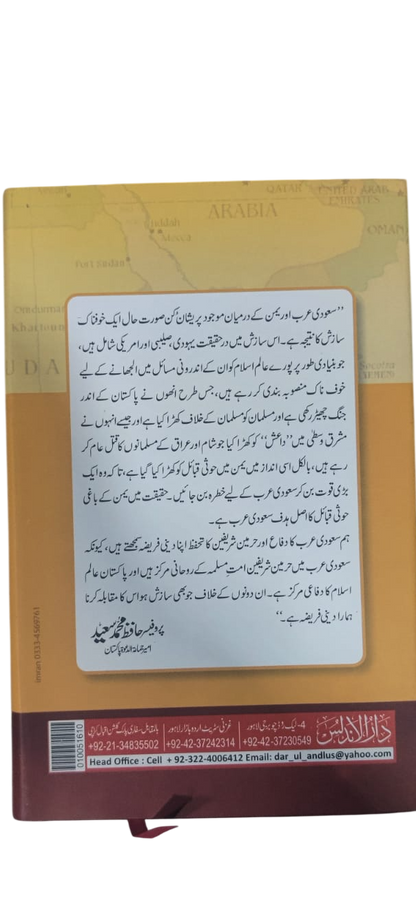 QATAR
UNITED ARAB
EMIRATES
ARABIA
OMAN
Mecca
Port Sudan
Omdurman
Khartoum
UDA
YEMEN
’’سعودی عرب اور یمن کے درمیان موجود پریشان کن صورت حال ایک خوفناک
سازش کا نتیجہ ہے۔ اس سازش میں درحقیقت یہودی، صلیبی اور امریکی شامل ہیں،
جو بنیادی طور پر پورے عالم اسلام کو ان کے اندرونی مسائل میں الجھانے کے لیے
خوف ناک منصوبہ بندی کر رہے ہیں، جس طرح انھوں نے پاکستان کے اندر
جنگ چھیڑ رکھی ہے اور مسلمان کو مسلمان کے خلاف کھڑا کیا ہے اور جیسے انہوں نے
مشرق وسطیٰ میں ’’داعش‘‘ کو کھڑا کیا جو شام اور عراق کے مسلمانوں کا قتل عام کر
رہے ہیں، بالکل اسی انداز میں یمن میں حوثی قبائل کو کھڑا کیا گیا ہے، تاکہ وہ ایک
بڑی قوت بن کر سعودی عرب کے لیے خطرہ بن جائیں۔ حقیقت میں یمن کے باغی
حوثی قبائل کا اصل ہدف سعودی عرب ہے۔
ہم سعودی عرب کا دفاع اور حرمین شریفین کا تحفظ اپنا دینی فریضہ سمجھتے ہیں، کیونکہ
سعودی عرب میں حرمین شریفین امت مسلمہ کے روحانی مرکز ہیں اور پاکستان عالم
اسلام کا دفاعی مرکز ہے۔ ان دونوں کے خلاف جو بھی سازش ہو اس کا مقابلہ کرنا
ہمارا دینی فریضہ ہے۔‘‘
پروفیسر حافظ محمد سعید
امیر جماعۃ الدعوۃ پاکستان
imran 0333-4589761
دارالاندلس
4- لیک روڈ چوبرجی لاہور
+92-42-37230549
غزنی سٹریٹ اردو بازار لاہور
+92-42-37242314
+92-21-34835502
010051610
Head Office : Cell + 92-322-4006412 Email: dar_ul_andlus@yahoo.com